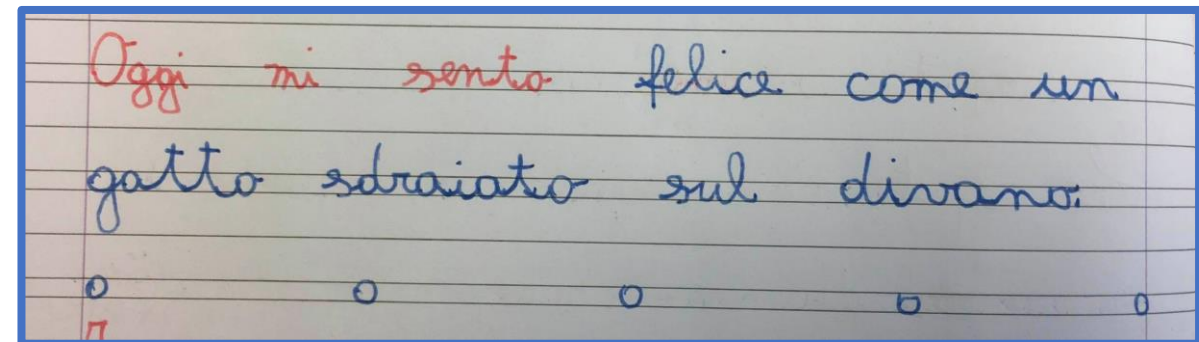 Oggi mi sento felice come un
gatto sdraiato sul divano.